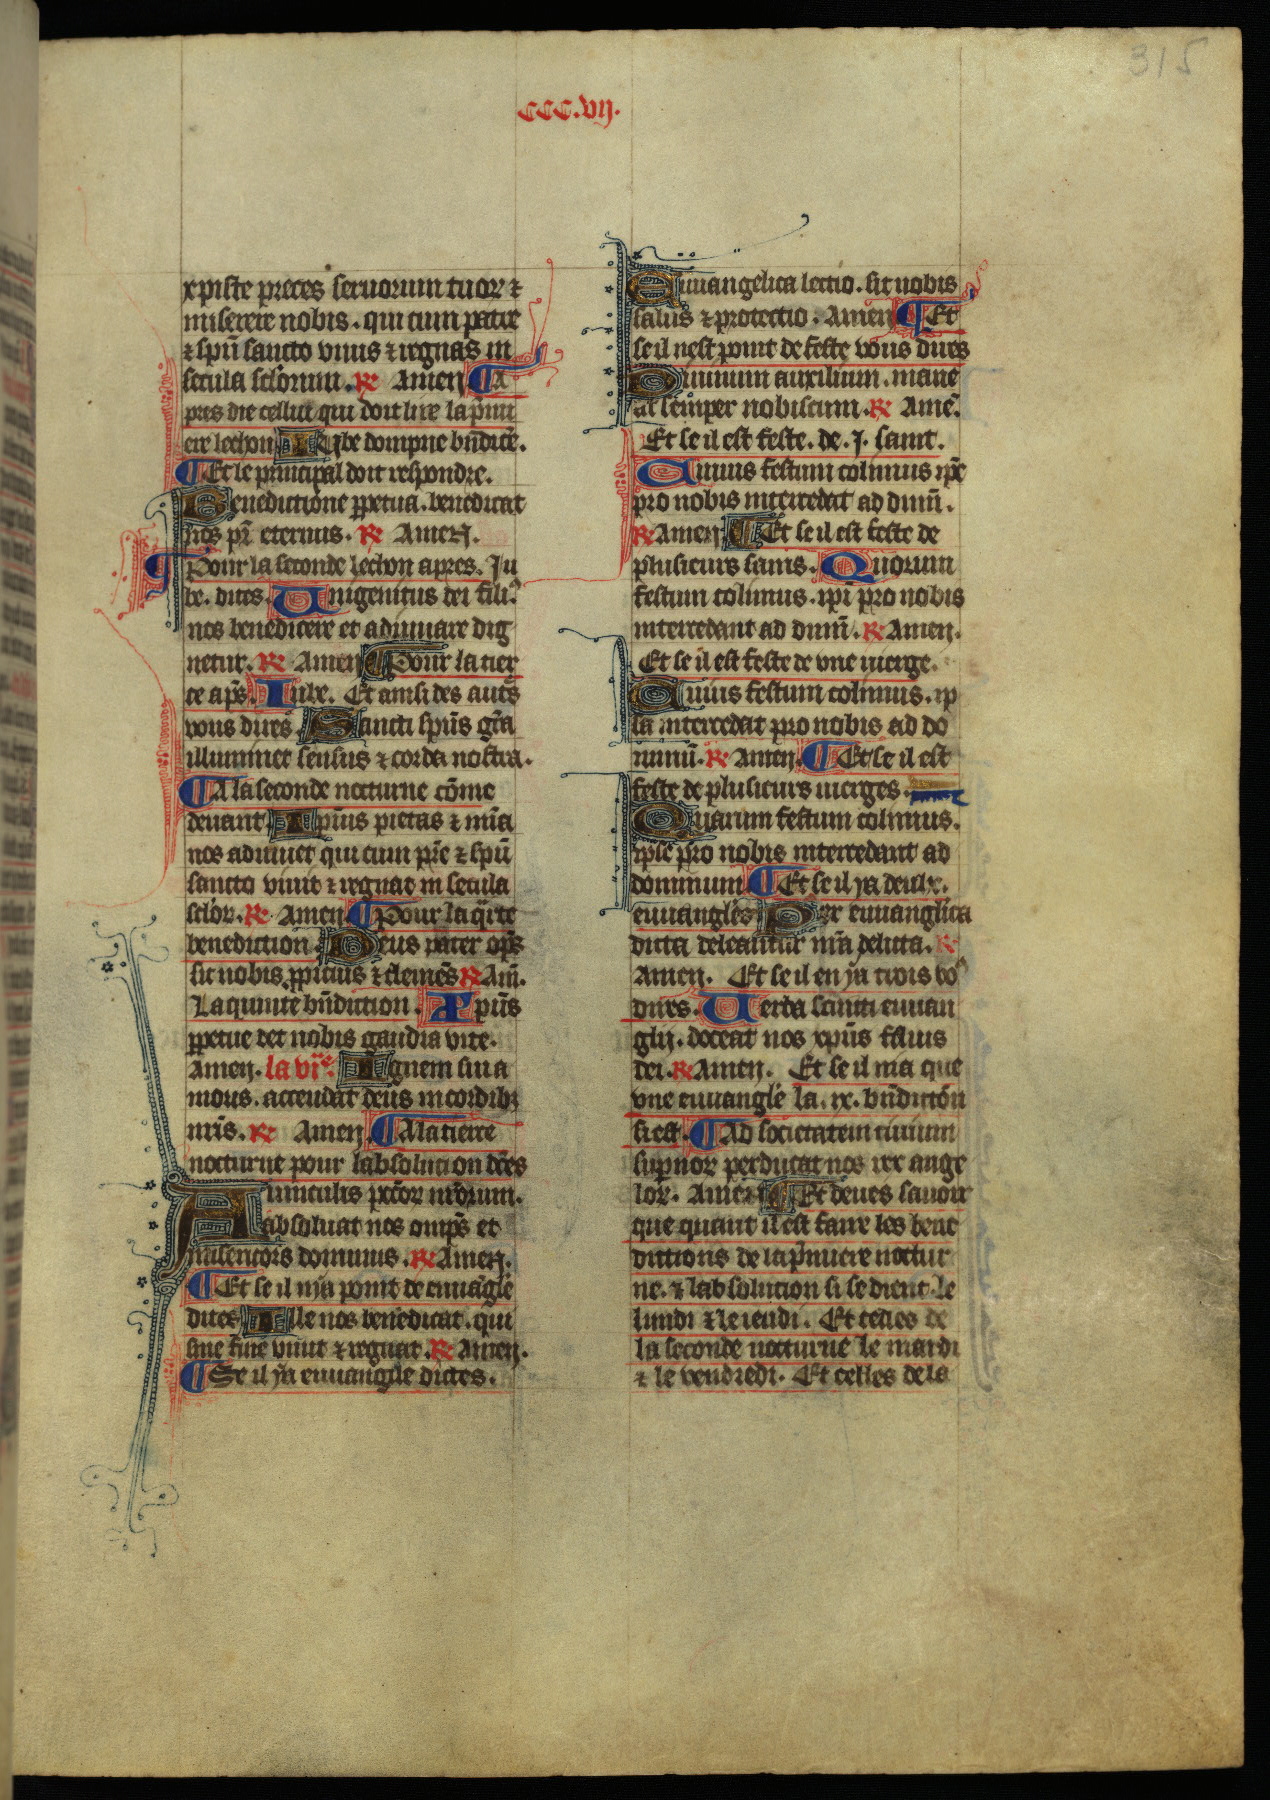 315
CCC.vij.
xpiste preces seruorum tuoꝝ ⁊
miserere nobis. qui cum patre
⁊ spū sancto viuis ⁊ regnas in
secula sclorum. ℟ Amen ¶ A
pres die cellui qui doit lire la p̄mi
ere lechon Iube dompne bn̄dicē.
¶ Et le principal doit respondre.
Benedictione ꝑpetua. benedicat
nos pr̄ eternus. ℟ Amen.
¶ Pour la seconde lechon apres. Iu
be. dites. Unigenitus dei filiꝰ
nos benedicere et adiuuare dig
netur. ℟ Amen ¶ Pour la tier
ce ap̄s. Iube. Et ainsi des aut̄s
vous dires Sancti spūs gr̄a
illuminet sensus ⁊ corda nostra.
¶ A la seconde nocturne cōme
deuant. Ipīus pietas ⁊ mīa
nos adiuuet qui cum pr̄e ⁊ spū
sancto viuit ⁊ regnat in secula
scloꝝ. ℟ Amen ¶ Pour la q̄rte
benediction. Deus pater op̄s
sit nobis ꝓpicius ⁊ clemēs ℟ Am̄.
La quinte bn̄diction. Xpūs
ꝑpetue det nobis gaudia vite.
Amen. la vi.e Ignem sui a
moris. accendat deus in cordibꝫ
nr̄is. ℟ Amen. ¶ A la tierce
nocturne pour labsolucion dc̄es
A uinculis pcc̄oꝝ nr̄orum.
absoluat nos omp̄s et
misericors dominus. ℟ Amen.
¶ Et se il nya point de euuāgle
dites Ille nos benedicat. qui
sine fine viuit ⁊ regnat. ℟ Amen.
¶ Se il ya euuangile dictes.
Euuangelica lectio. sit nobis
salus ⁊ protectio. Amen ¶ Et
se il nest point de feste vous dires
Diuinum auxilium. mane
at semper nobiscum. ℟ Amē.
Et se il est feste. de .I. saint.
Cuius festum colimus ip̄e
pro nobis intercedat ad dn̄m̄.
℟ Amen ¶ Et se il est feste de
plusieurs sains. Quorum
festum colimus. ip̄i pro nobis
intercedant ad dn̄m̄. ℟ Amen.
Et se il est feste de vne vierge.
Cuius festum colimus. ip
sa intercedat pro nobis ad do
minū. ℟ Amen. ¶ Et se il est
feste de plusieurs vierges.
Quarum festum colimus.
ipse pro nobis intercedant ad
dominum ¶ Et se il ya deulx.
euuangles Per euuanglica
dicta deleantur nr̄a delicta. ℟
Amen. Et se il en ya trois voꝰ
dires. Uerba sancti euuan
glij. doceat nos xpūs filius
dei. ℟ Amen. Et se il nia que
vne euuangle la .ix. bn̄dictōn
si est. ¶ Ad societatem ciuium
sup̄noꝝ perducat nos rex ange
loꝝ. Amen ¶ Et deues sauoir
que quant il est faire les bene
dictions de la p̄miere noctur
ne. ⁊ labsolucion si se dient. le
lundi ⁊ le ieudi. Et celles de
la seconde nocturne le mardi
⁊ le vendredi. Et celles de la